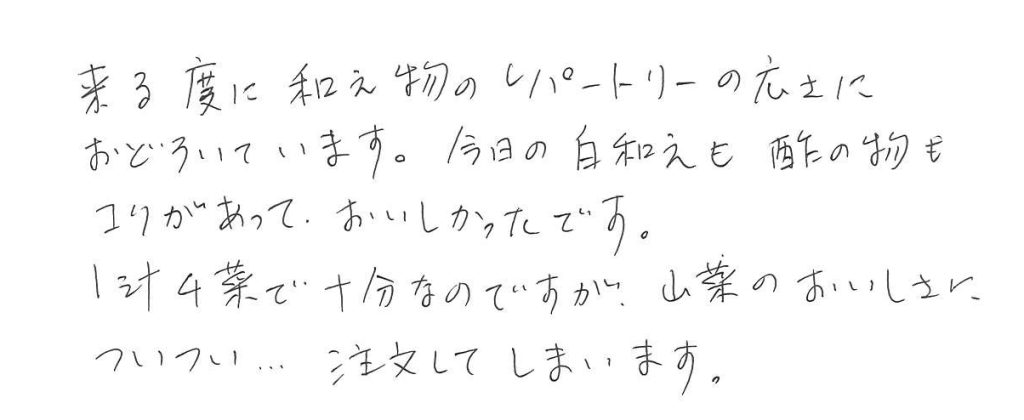 来る度に和え物のレパートリーの広さに
おどろいています。今日の白和えも酢の物も
コクがあって、おいしかったです。
1汁4菜で十分なのですが、山菜のおいしさに、
ついつい…注文してしまいます。